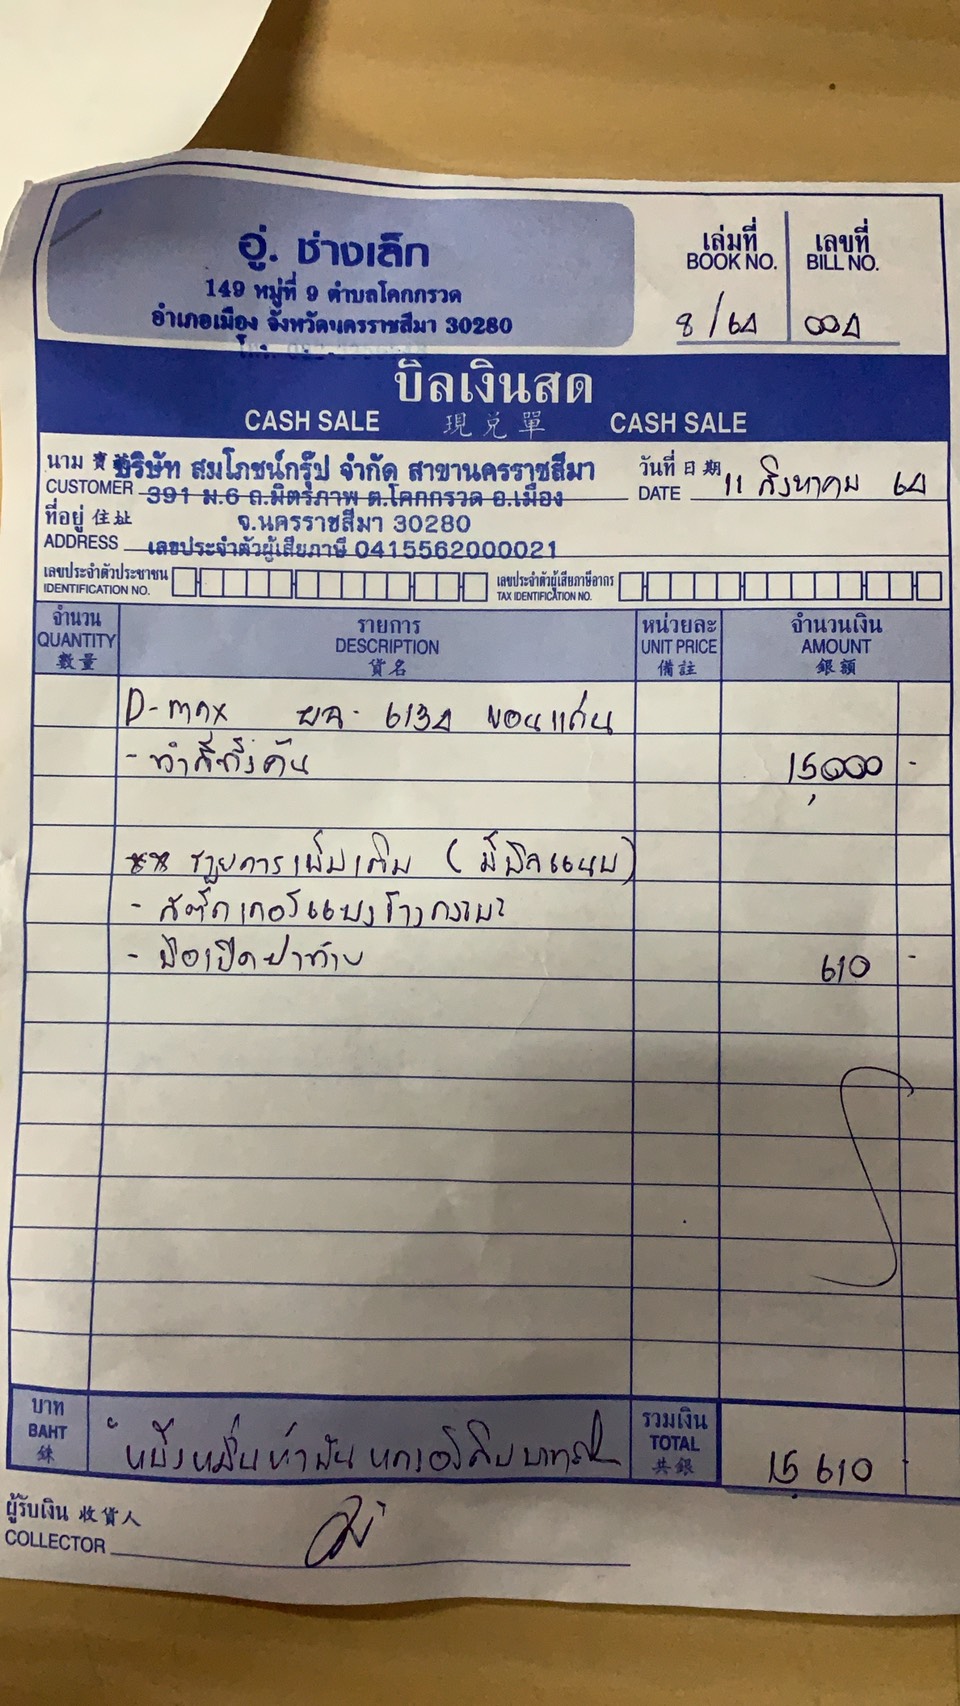 อู่. ช่างเล็ก
149 หมู่ที่ 9 ตำบลโคกกรวด
อำเภอเมือง จังหวัดนครราชสีมา 30280
เล่มที่ เลขที่
BOOK NO. BILL NO.
8/64 004
บิลเงินสด
CASH SALE 現兑單 CASH SALE
นาม บริษัท สมโภชน์กรุ๊ป จำกัด สาขานครราชสีมา
CUSTOMER 391 ม.6 ถ.มิตรภาพ ต.โคกกรวด อ.เมือง
วันที่ 日期
DATE 11 สิงหาคม 64
ที่อยู่ 住址 จ.นครราชสีมา 30280
ADDRESS เลขประจำตัวผู้เสียภาษี 0415562000021
เลขประจำตัวประชาชน
IDENTIFICATION NO.
เลขประจำตัวผู้เสียภาษีอากร
TAX IDENTIFICATION NO.
จำนวน รายการ หน่วยละ จำนวนเงิน
QUANTITY DESCRIPTION UNIT PRICE AMOUNT
數量 貨名 備註 銀額
D-max 6134 ขอนแก่น
- ทำสีทั้งคัน 15,000 -
** รายการเพิ่มเติม (มีบิลแนบ)
- สติ๊กเกอร์
- มือเปิดฝาท้าย 610 -
บาท รวมเงิน
BAHT หนึ่งหมื่นห้าพันหกร้อยสิบบาทถ้วน TOTAL 15,610
銖 共銀
ผู้รับเงิน 收貨人
COLLECTOR